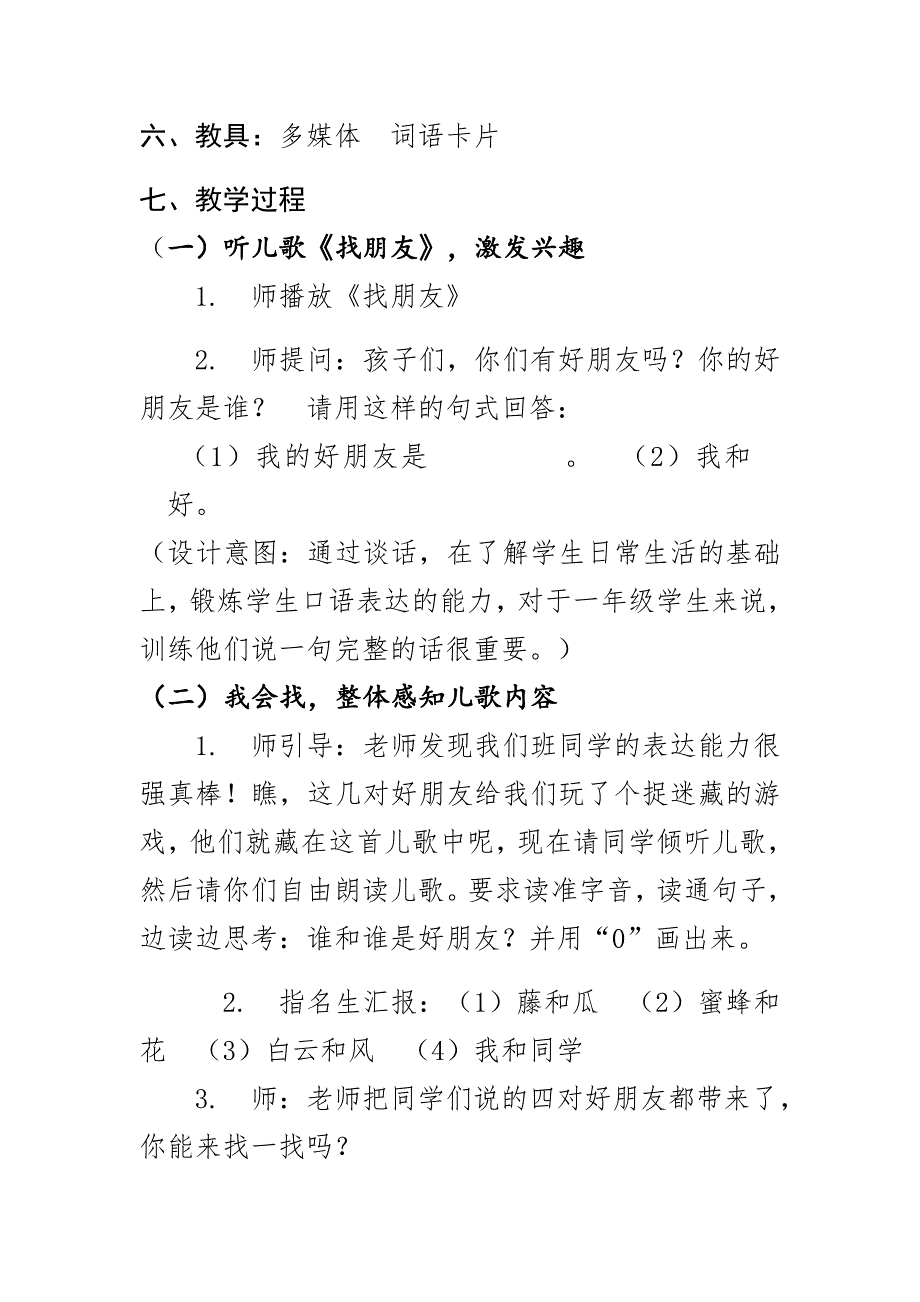 六、教具：多媒体　词语卡片
七、教学过程
（一）听儿歌《找朋友》，激发兴趣
1.　师播放《找朋友》
2.　师提问：孩子们，你们有好朋友吗？你的好
朋友是谁？　请用这样的句式回答：
（1）我的好朋友是　　　　　。　（2）我和
好。
（设计意图：通过谈话，在了解学生日常生活的基础
上，锻炼学生口语表达的能力，对于一年级学生来说，
训练他们说一句完整的话很重要。）
（二）我会找，整体感知儿歌内容
1.　师引导：老师发现我们班同学的表达能力很
强真棒！瞧，这几对好朋友给我们玩了个捉迷藏的游
戏，他们就藏在这首儿歌中呢，现在请同学倾听儿歌，
然后请你们自由朗读儿歌。要求读准字音，读通句子，
边读边思考：谁和谁是好朋友？并用“O”画出来。
2.　指名生汇报：（1）藤和瓜　（2）蜜蜂和
花　（3）白云和风　（4）我和同学
3.　师：老师把同学们说的四对好朋友都带来了，
你能来找一找吗？